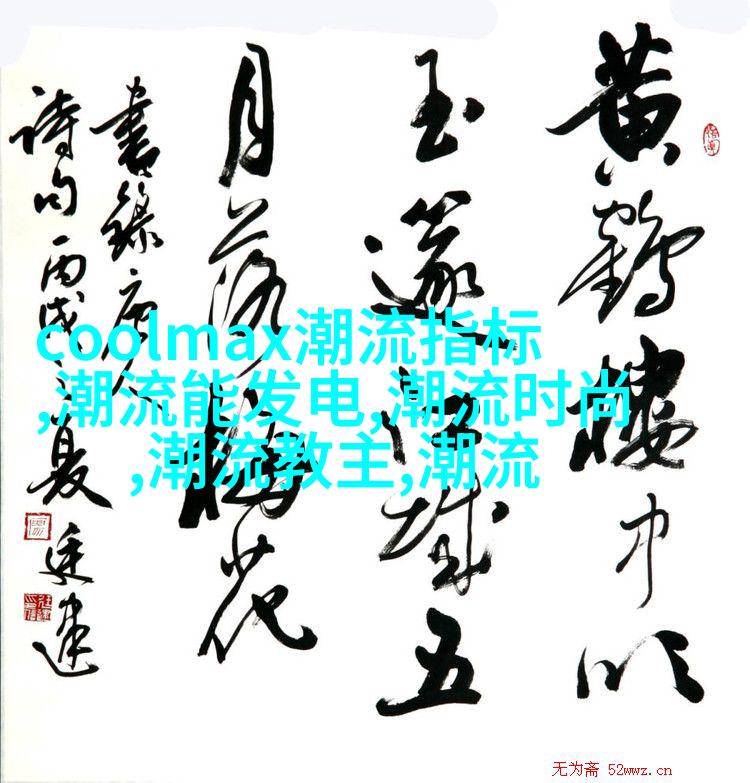 黄鹤楼中吹
玉篴江城五
月落梅花
書錄唐人
诗句丙戌之夏廷建
coolmax潮流指标
,潮流能发电,潮流时尚
,潮流教主,潮流
无为斋 52wwz.cn